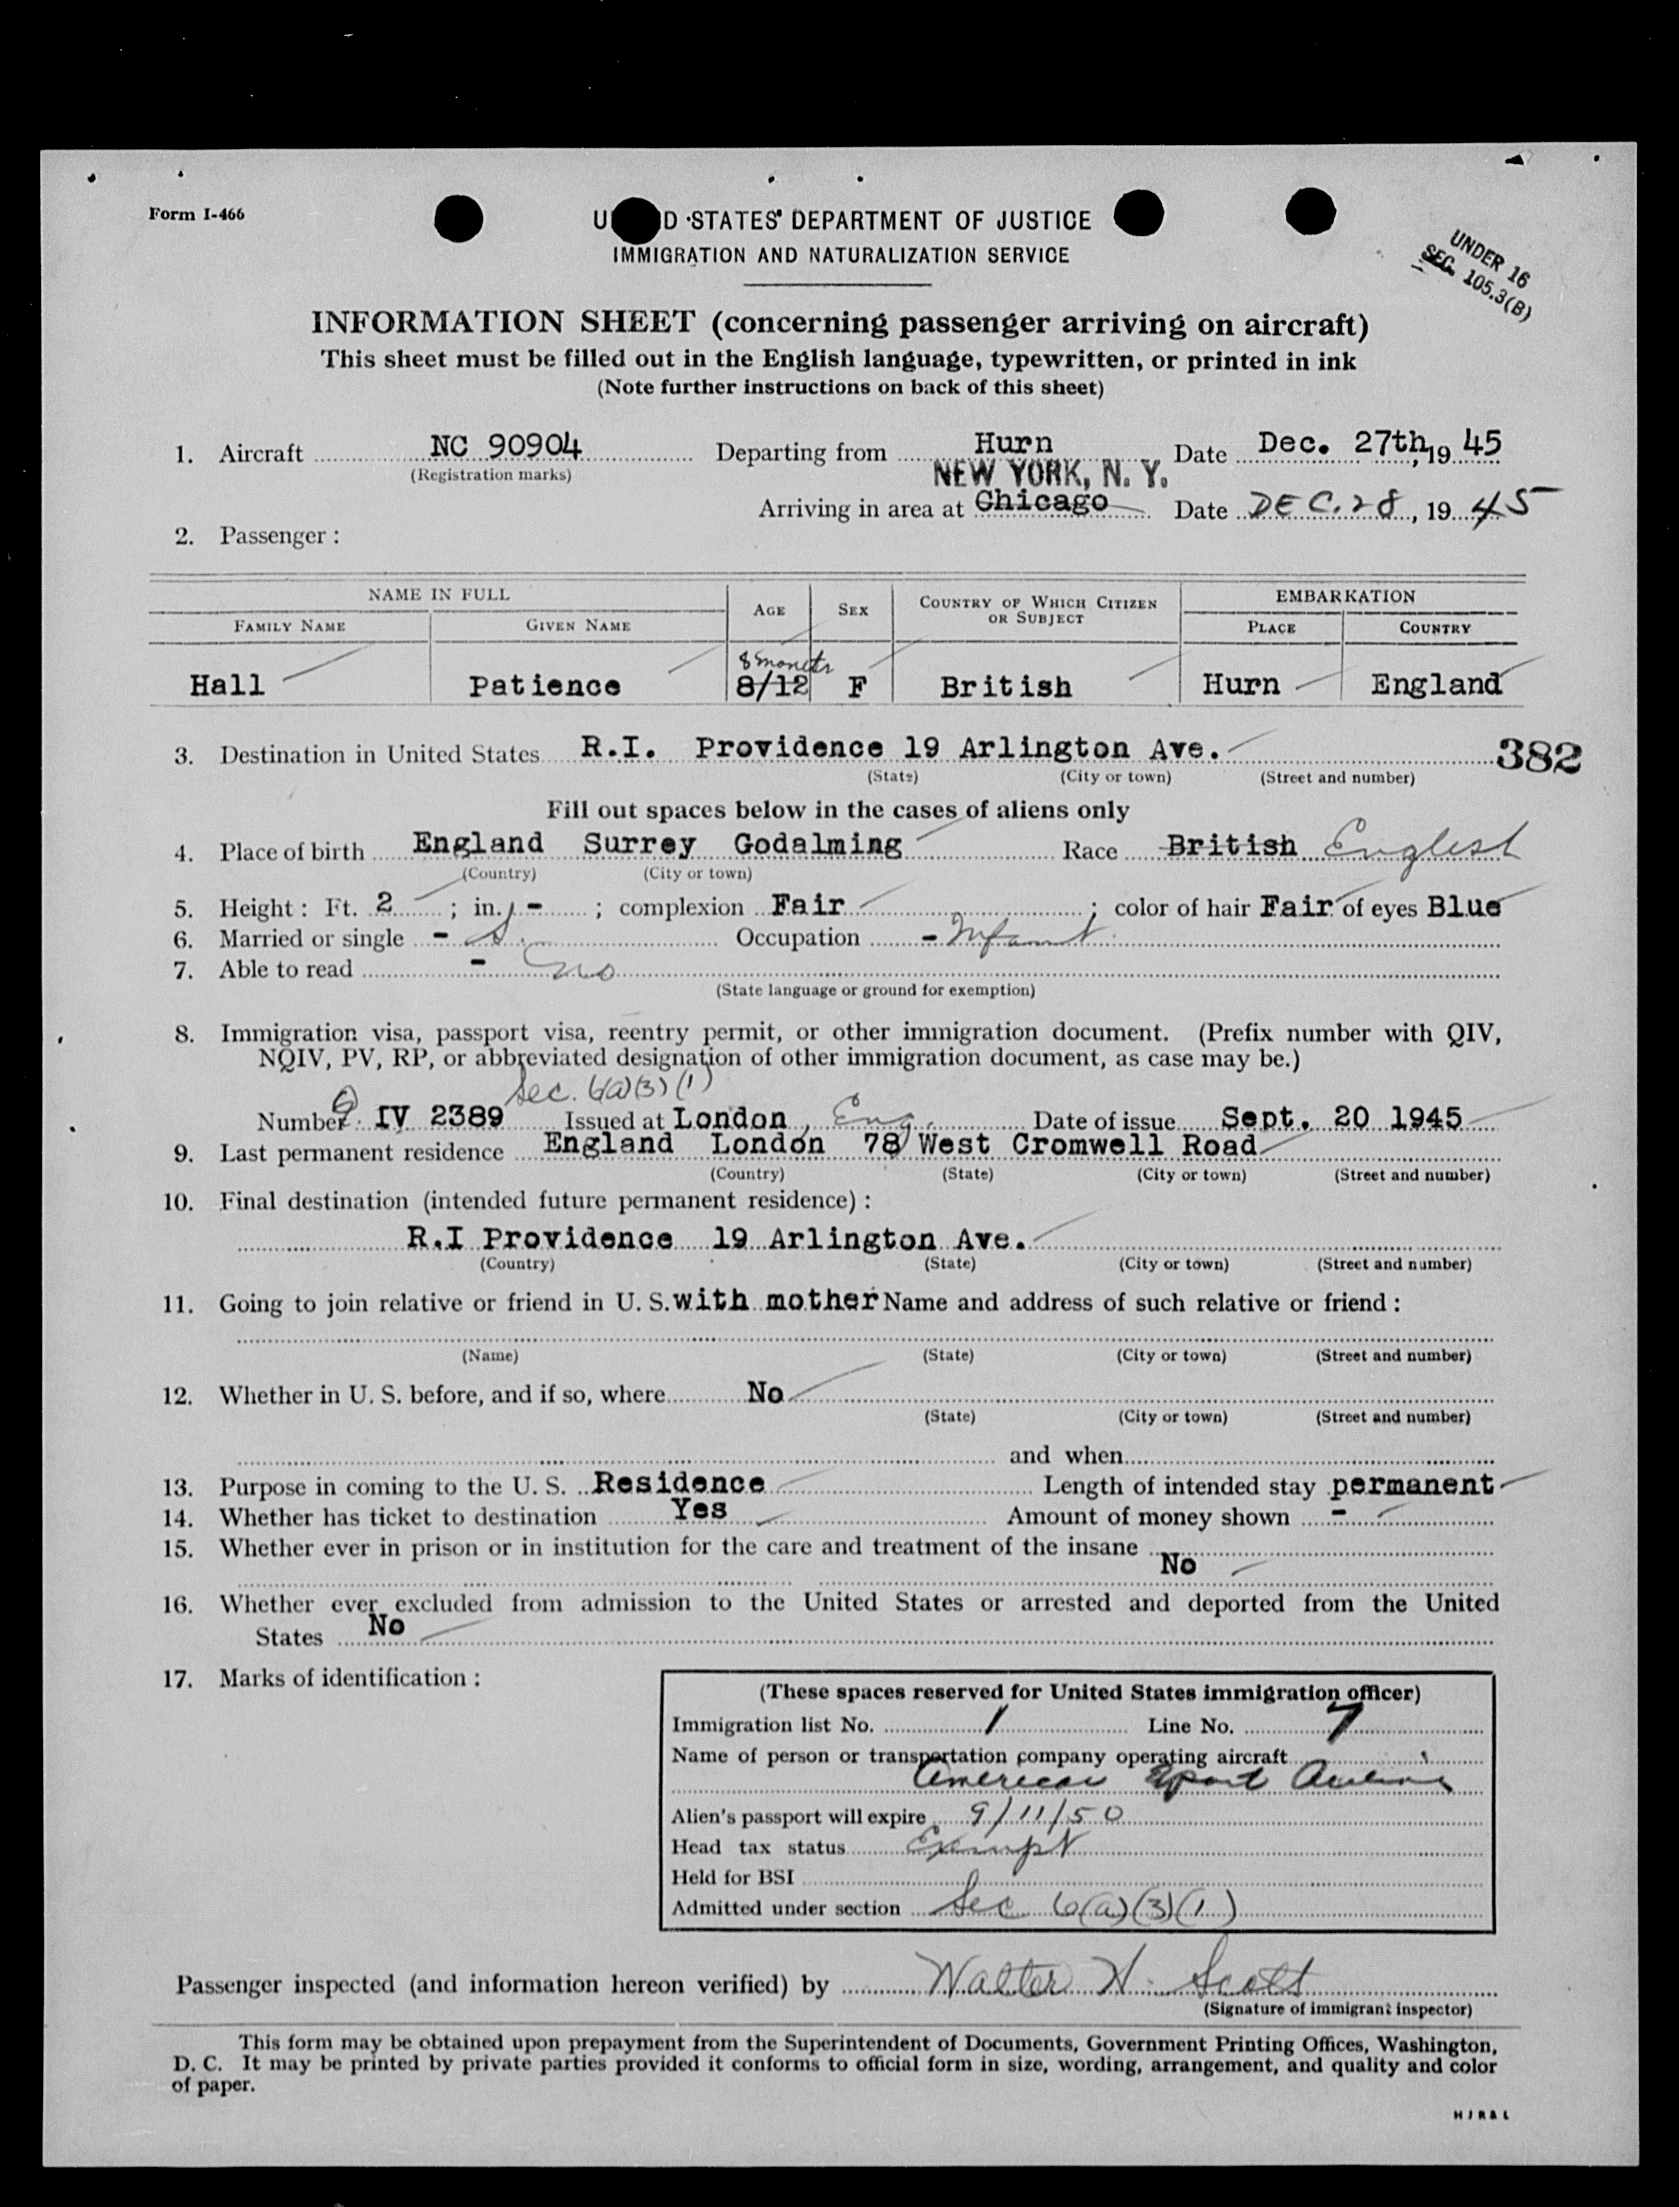 Form I-466
U D STATES DEPARTMENT OF JUSTICE
IMMIGRATION AND NATURALIZATION SERVICE
UNDER 16
SEC. 105.3(B)
INFORMATION SHEET (concerning passenger arriving on aircraft)
This sheet must be filled out in the English language, typewritten, or printed in ink
(Note further instructions on back of this sheet)
1. Aircraft NC 90904 Departing from Hurn Date Dec. 27th, 19 45
(Registration marks)
NEW YORK, N. Y.
Arriving in area at Chicago Date DEC. 28, 19 45
2. Passenger :
NAME IN FULL AGE SEX COUNTRY OF WHICH CITIZEN OR SUBJECT EMBARKATION
FAMILY NAME GIVEN NAME PLACE COUNTRY
8 months
Hall Patience 8/12 F British Hurn England
3. Destination in United States R.I. Providence 19 Arlington Ave. 382
(State) (City or town) (Street and number)
Fill out spaces below in the cases of aliens only
4. Place of birth England Surrey Godalming Race British English
(Country) (City or town)
5. Height : Ft. 2 ; in. - ; complexion Fair ; color of hair Fair of eyes Blue
6. Married or single - S. Occupation - Infant
7. Able to read - no
(State language or ground for exemption)
8. Immigration visa, passport visa, reentry permit, or other immigration document. (Prefix number with QIV,
NQIV, PV, RP, or abbreviated designation of other immigration document, as case may be.)
Sec. 6(a)(3)(1)
Number Q IV 2389 Issued at London, Eng. Date of issue Sept. 20 1945
9. Last permanent residence England London 78 West Cromwell Road
(Country) (State) (City or town) (Street and number)
10. Final destination (intended future permanent residence) :
R.I Providence 19 Arlington Ave.
(Country) (State) (City or town) (Street and number)
11. Going to join relative or friend in U. S. with mother Name and address of such relative or friend :
(Name) (State) (City or town) (Street and number)
12. Whether in U. S. before, and if so, where No
(State) (City or town) (Street and number)
and when
13. Purpose in coming to the U. S. Residence Length of intended stay permanent
14. Whether has ticket to destination Yes Amount of money shown -
15. Whether ever in prison or in institution for the care and treatment of the insane
No
16. Whether ever excluded from admission to the United States or arrested and deported from the United
States No
17. Marks of identification :
(These spaces reserved for United States immigration officer)
Immigration list No. 1 Line No. 7
Name of person or transportation company operating aircraft
American Export Airlines
Alien's passport will expire 9/11/50
Head tax status Exempt
Held for BSI
Admitted under section Sec 6(a)(3)(1)
Passenger inspected (and information hereon verified) by Walter H. Scott
(Signature of immigrant inspector)
This form may be obtained upon prepayment from the Superintendent of Documents, Government Printing Offices, Washington,
D. C. It may be printed by private parties provided it conforms to official form in size, wording, arrangement, and quality and color
of paper.
H J R & L